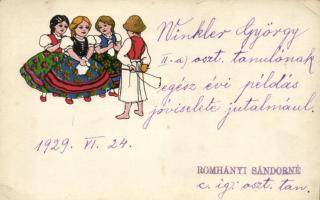 Winkler György
II-a) oszt. tanulónak
egész évi példás
jóviselete jutalmául.
1929. VI. 24.
ROMHÁNYI SÁNDORNÉ
c. ig. oszt. tan.